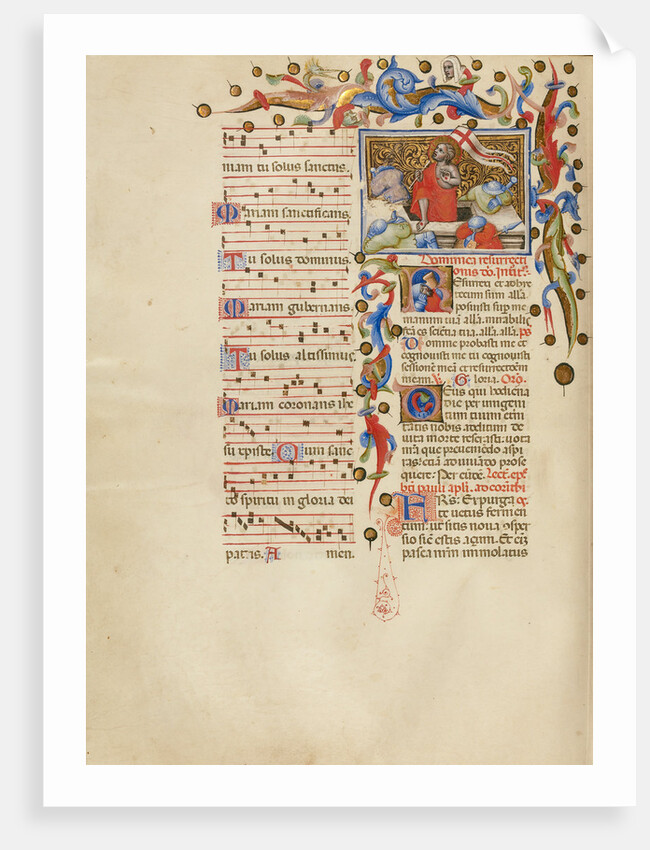 niam tu solus sanctus.
Mariam sanctificans.
Tu solus dominus.
Mariam gubernans.
Tu solus altissimus.
Mariam coronans ihe
su xpiste. Cum sanc
to spiritu in gloria dei
patris. A men.
Dominica resurrecti
onis
Resurrexi et adhuc
tecum sum alla.
posuisti sup me
manum tuā alla. mirabilis
scīa tua. alla. alla. ps
Domine probasti me et
cognovisti me tu cognovisti
sessionē meā et resurrectionē
meam. V. Gloria. Oro.
Deus qui hodierna
die per unigeni
tum tuum etni
tatis nobis aditum de
victa morte reserasti: vota
nra que preveniendo aspi
ras: etiā adiuvādo prose
quere. Per eundē. Lectō epl'e
bti pauli apli. ad corithi
FRS: Expurga
te vetus fermen
tum: ut sitis nova conspe
sio sicut estis açimi. Et eniz
pasca nrm immolatus